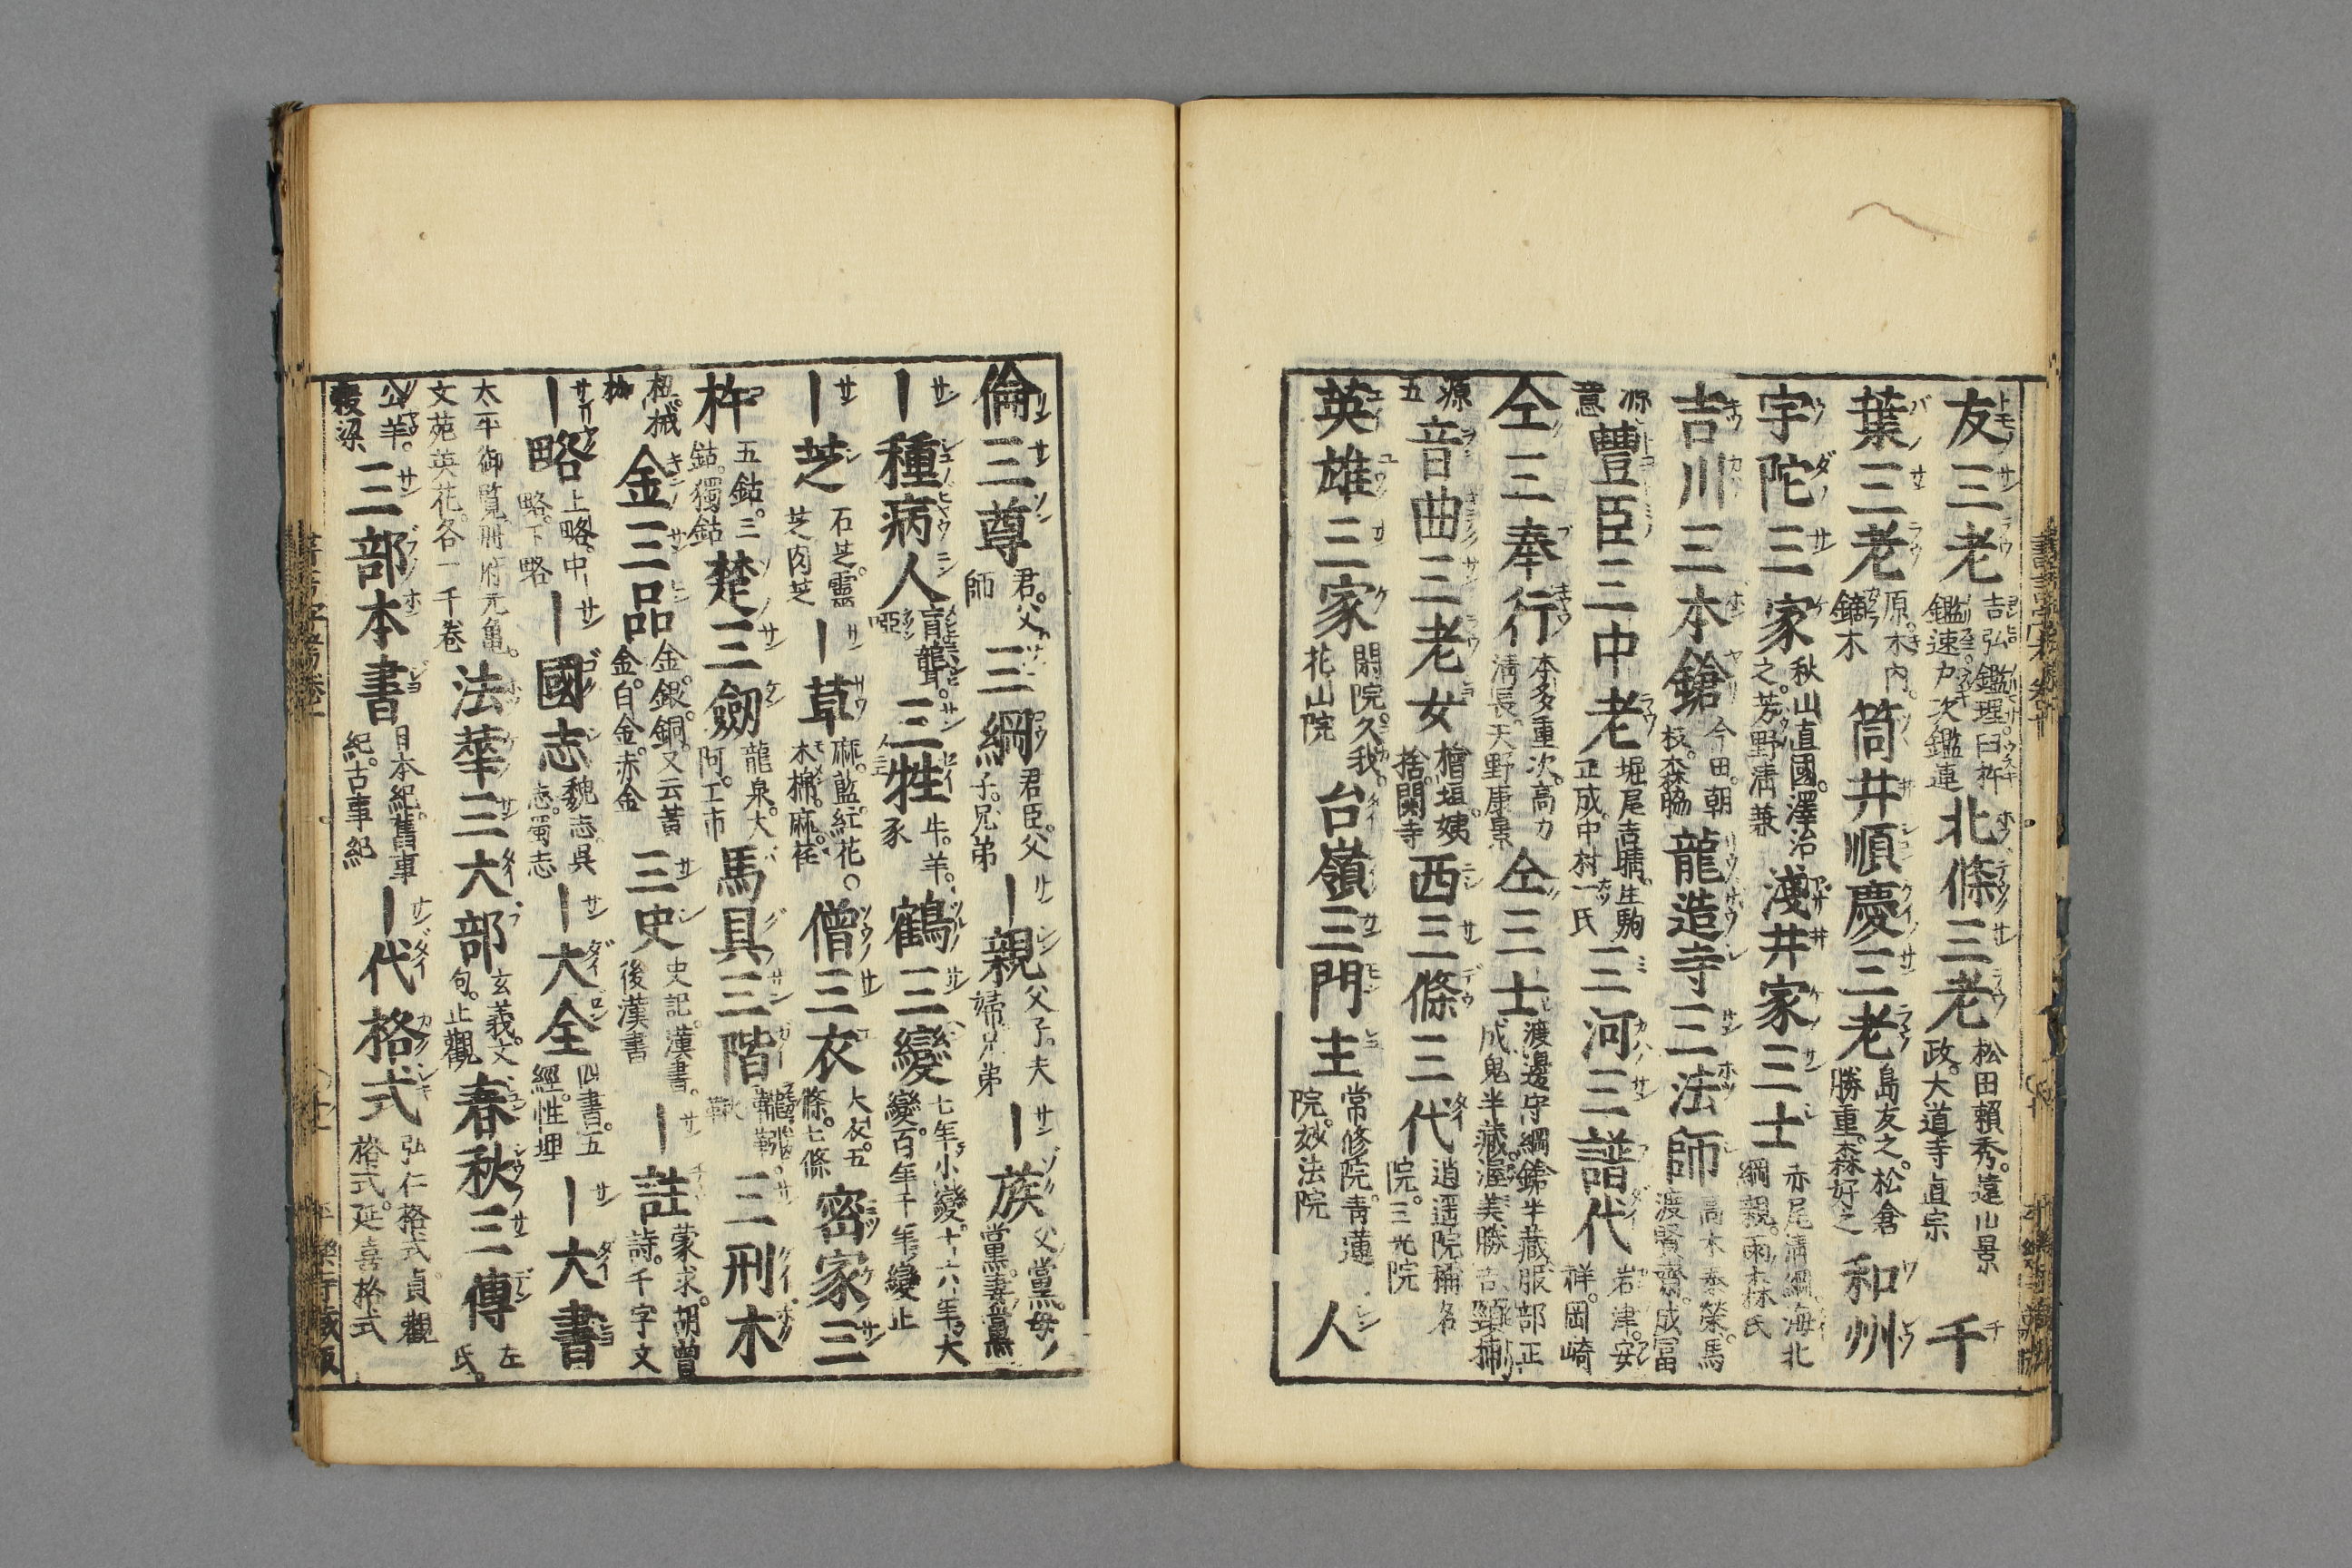 友三老 吉弘鑑理。臼杵鑑速。戸次鑑連 北條三老 松田頼秀。遠山景政。大道寺直宗 千
葉三老 原。木内。鏑木 筒井順慶三老 島友之。松倉勝重。森好之 和州
宇陀三家 秋山直國。澤治之。芳野淸兼 淺井家三士 赤尾淸綱。海北綱親。雨森氏
吉川三本鎗 今田。朝枝。森脇 龍造寺三法師 高木泰榮。馬渡賢齋。成冨
源意 豐臣三中老 堀尾吉晴。生駒正成。中村一氏 三河三譜代 岩津。安祥。岡崎
仝三奉行 本多重次。高力淸長。天野康景 仝三士 渡邊守綱鎗半藏。服部正成鬼半藏。渥美勝吉頸捕
源五 音曲三老女 檜垣。姨捨。関寺 西三條三代 逍遥院。稱名院。三光院
英雄三家 閑院。久我。花山院 台嶺三門主 常修院。青蓮院。妙法院 人
倫三尊 君。父。師 三綱 君臣。父子。兄弟 ｜親 父子。夫婦。兄弟 ｜族 父黨。母黨。妻黨
｜種病人 盲。聾。啞 三牲 牛。羊。豕 鶴三變 七年小變。十六年大變。百年千年變止
｜芝 石芝。靈芝。肉芝 ｜草 麻。藍。紅花。木棉。麻。 僧三衣 大衣。五條。七條 密家三
杵 五鈷。三鈷。獨鈷 楚三劔 龍泉。大阿。工市 馬具三階 三刑木
杻。械。枷 金三品 金。銀。銅。又云黃金。白金。赤金 三史 史記。漢書。後漢書 ｜註 蒙求。胡曾詩。千字文
｜略 上略。中略。下略 ｜國志 魏志。呉志。蜀志 ｜大全 四書。五經。性理 ｜大書
太平御覧。冊府元亀。文苑英花。各一千卷 法華三大部 玄義。文句。止觀 春秋三傳 左氏。
公羊。穀梁 三部本書 日本紀。舊事紀。古事紀 ｜代格式 弘仁格式。貞觀格式。延喜格式